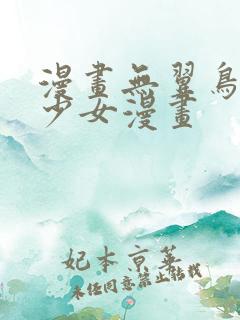 漫畫無翼鳥
少女漫畫
妃本京英
未经同意禁止转载